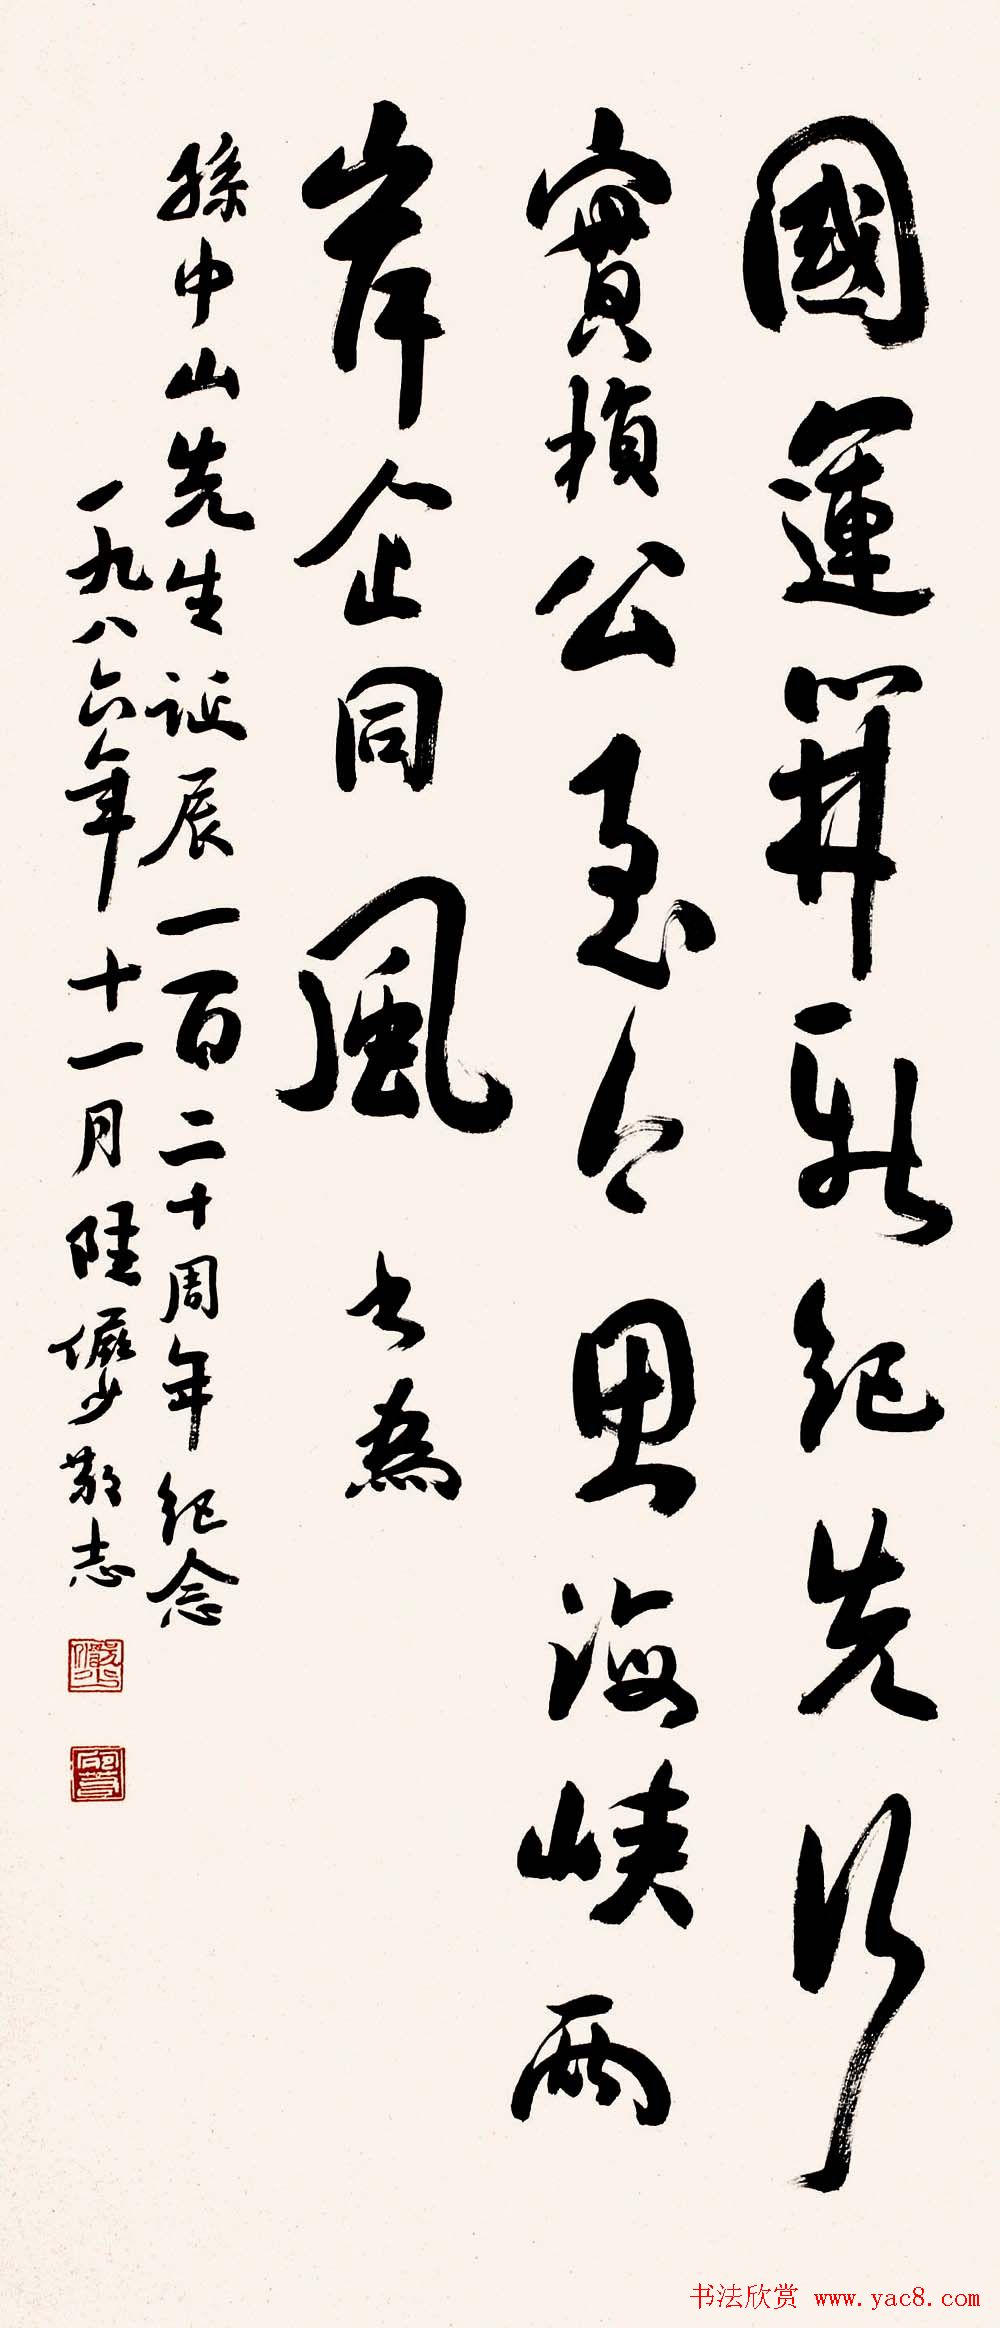 國運開新紀先行
實公至今思海峽兩
岸企同風 書為
孫中山先生誕辰一百二十周年紀念
一九八六年十一月陸儼少敬志
书法欣赏 www.yac8.com